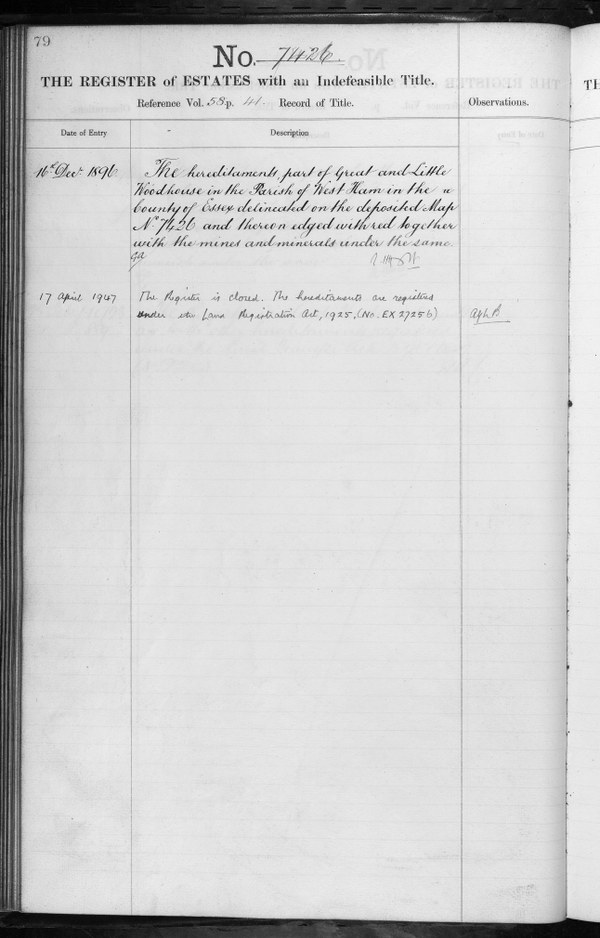 79
No. 7426.
THE REGISTER of ESTATES with an Indefeasible Title.
Reference Vol. 58 p. 41. Record of Title.
Observations.
Date of Entry
Description
16th Decr. 1896.
The hereditaments, part of Great and Little
Woodhouse in the Parish of West Ham in the
County of Essex delineated on the deposited Map
No. 7426 and thereon edged with red together
with the mines and minerals under the same.
17 April 1947
The Register is closed. The hereditaments are registered
under the Land Registration Act, 1925, (No. EX 27256)
TH